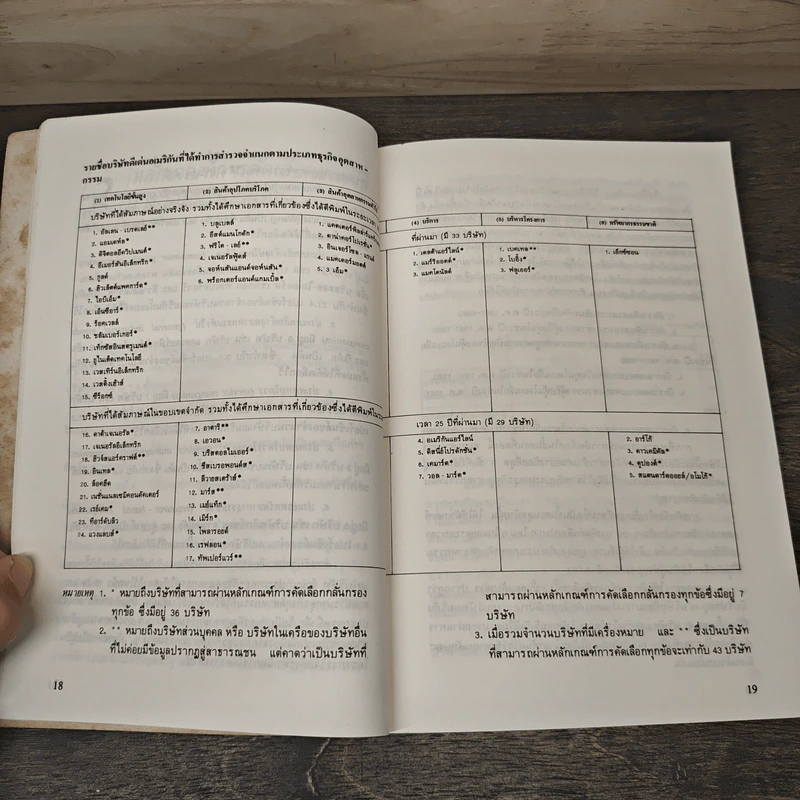 รายชื่อบริษัทดีเด่นอเมริกันที่ได้ทำการสำรวจจำแนกตามประเภทธุรกิจอุตสาห –
กรรม
(1) เทคโนโลยีชั้นสูง
(2) สินค้าอุปโภคบริโภค
(3) สินค้าอุตสาหกรรมทั่วไป
บริษัทที่ได้สัมภาษณ์อย่างจริงจัง รวมทั้งได้ศึกษาเอกสารที่เกี่ยวข้องซึ่งได้ตีพิมพ์ในระยะเวลา
1. อัลเลน - เบรดเลย์**
2. แอมดาห์ล*
3. ดิจิตอลอีควิปเมนต์*
4. อีเมอร์สันอีเล็กทริก*
5. กูลด์
6. ฮิวเล็ตต์แพคการ์ด*
7. ไอบีเอ็ม*
8. เอ็นซีอาร์*
9. ร็อคเวลล์
10. ชลัมเบอร์เกอร์*
11. เท็กซัสอินสตรูเมนต์*
12. ยูไนเต็ดเทคโนโลยี
13. เวสเทิร์นอีเล็กทริก
14. เวสติ้งเฮ้าส์
15. ซีร็อกซ์
1. บลูเบลล์
2. อีสต์แมนโกดัก*
3. ฟริโต - เลย์**
4. เจเนอรัลฟู้ดส์
5. จอห์นสันแอนด์จอห์นสัน*
6. พร็อกเตอร์แอนด์แกมเบิ้ล*
4. แมคเดอร์มอตต์
5. 3 เอ็ม*
บริษัทที่ได้สัมภาษณ์ในขอบเขตจำกัด รวมทั้งได้ศึกษาเอกสารที่เกี่ยวข้องซึ่งได้ตีพิมพ์ใน
16. ดาต้าเจเนอรัล*
17. เจเนอรัลอีเล็กทริก
18. ฮิวจ์สแอร์คราฟต์**
19. อินเทล*
20. ล็อคฮีด
21. เนชั่นแนลเซมิคอนดัคเตอร์
22. เรย์เคม*
23. ทีอาร์ดับลิว
24. แวงแลบส์*
7. อาตาริ**
8. เอวอน*
9. บริสตอลไมเออร์*
10. ชีสเบรอพอนด์ส*
11. ลีวายสเตร้าส์*
12. มาร์ส**
13. เมย์แท็ก*
14. เมิร์ก*
15. โพลารอยด์
16. เรฟลอน*
17. ทัพเปอร์แวร์**
หมายเหตุ 1. * หมายถึงบริษัทที่สามารถผ่านหลักเกณฑ์การคัดเลือกกลั่นกรอง
ทุกข้อ ซึ่งมีอยู่ 36 บริษัท
2. ** หมายถึงบริษัทส่วนบุคคล หรือ บริษัทในเครือของบริษัทอื่น
ที่ไม่ค่อยมีข้อมูลปรากฏสู่สาธารณชน แต่คาดว่าเป็นบริษัทที่
18
(4) บริการ
(5) บริหารโครงการ
(6) ทรัพยากรธรรมชาติ
ที่ผ่านมา (มี 33 บริษัท)
1. เดลต้าแอร์ไลน์*
2. แมร์ริออตต์*
3. แมคโดนัลด์
1. เบคเทล**
2. โบอิ้ง*
3. ฟลูเออร์*
1. เอ็กซ์ซอน
เวลา 25 ปีที่ผ่านมา (มี 29 บริษัท)
4. อเมริกันแอร์ไลน์
5. ดิสนีย์โปรดักชั่น*
6. เคมาร์ต*
7. วอล - มาร์ต*
2. อาร์โก้
3. ดาวเคมิคัล*
4. ดูปองต์*
5. สแตนดาร์ดออยล์/อโมโก้*
สามารถผ่านหลักเกณฑ์การคัดเลือกกลั่นกรองทุกข้อซึ่งมีอยู่ 7
บริษัท
3. เมื่อรวมจำนวนบริษัทที่มีเครื่องหมาย และ ** ซึ่งเป็นบริษัท
ที่สามารถผ่านหลักเกณฑ์การคัดเลือกทุกข้อจะเท่ากับ 43 บริษัท
19